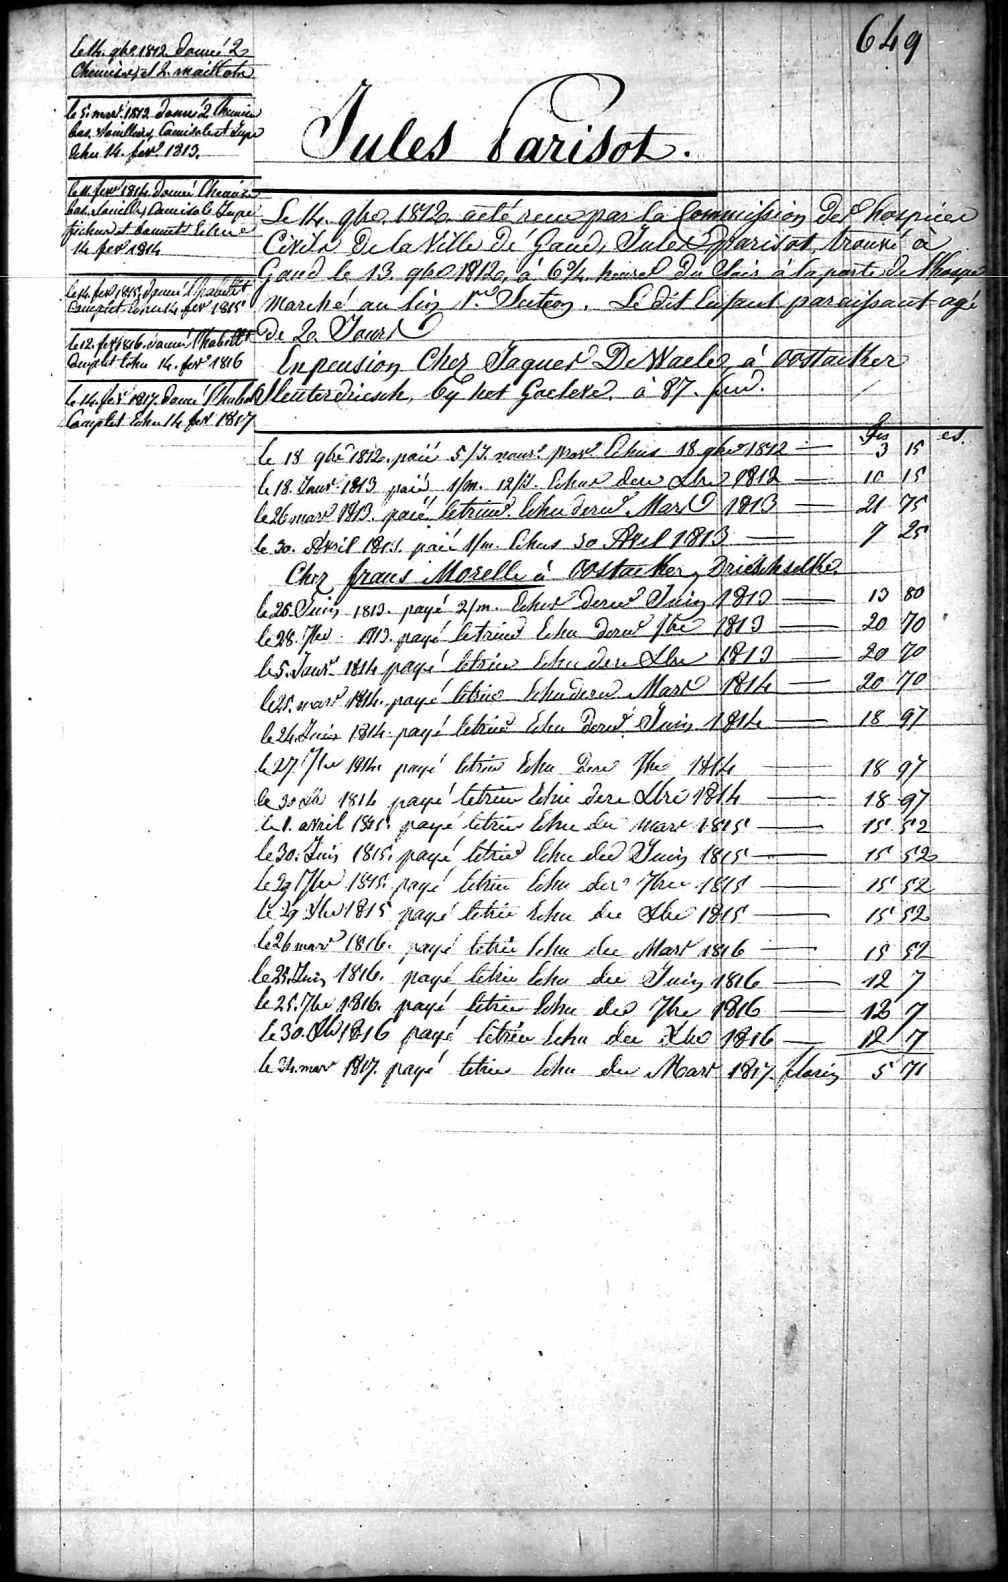 649
le 14. 9bre. 1812. donné 2
Chemises et 2. maillots
le 5. mars. 1812 donné 2 Chemise
bas. Souilliers, Camisole et Jupe
Echu 14. fevr 1813.
le 11. fevr 1814. donné Chemise
bas. Souilliers Camisole Jupe
fichu et bonnet Echu e
14 fevr 1814
le 14. fevr 1815. donné l'habillt
Complet Echu 14. fevr 1815
le 12. fevr 1816. donné l'habillt
Complet Echu 14. fevr 1816
le 14. fevr 1817. donné l'habill
Complet Echu 14 fevr 1817
Jules Parisot.
Le 14. 9bre. 1812. a été recu par la Commission des hospices
Civils De la Ville de Gand, Jules Parisot, trouvé à
Gand le 13. 9bre 1812, à 6 3/4 heures Du Soir à la porte de l'hospice
marché au lin 1re Section. Le dit Enfant paraissant agé
de 20 Jours
En pension Chez Jaques De Waele, à Oostacker
Slenterdriesch, by het Goeleve. à 87. fcs.
fcs es.
le 18 9bre 1812. paié 5/J. nourr prov Echus 18 9bre 1812 — 3 15
le 18. Janr. 1813 paié 1/m. 12/J. Echus derr Xbre 1812 — 10 15
le 26 mars 1813. paié letrim. Echu derr Mars 1813 — 21 75
le 30. Avril 1813. paié 1/m. Echus 30 Avril 1813 — 7 25
Chez frans Morelle à Oostacker, Drieschselke.
le 25. Juin 1813. payé 2/m. Echus derr Juin 1813 — 13 80
le 28. 7bre. 1813. payé letrim Echu derr 7bre 1813 — 20 70
le 5. Janr. 1814 payé letrim Echu derr Xbre 1813 — 20 70
le 25. mars 1814. payé letrim Echu derr Mars 1814 — 20 70
le 24. Juin 1814. payé letrim Echu derr Juin 1814 — 18 97
le 27. 7bre 1814. payé letrim Echu derr 7bre 1814 — 18 97
le 30 Xbr 1814 payé letrim Echu derr Xbre 1814 — 18 97
le 1. avril 1815. payé letrim Echu der mars 1815 — 15 52
le 30. Juin 1815. payé letrim Echu der Juin 1815 — 15 52
le 29 7bre 1815. payé letrim Echu der 7bre 1815 — 15 52
le 29 Xbre 1815 payé letrim Echu der Xbre 1815 — 15 52
le 26 mars 1816. payé letrim Echu der Mars 1816 — 15 52
le 25. Juin 1816. payé letrim Echu der Juin 1816 — 12 7
le 25. 7bre 1816. payé letrim Echu der 7bre 1816 — 12 7
le 30. Xbr 1816 payé letrim Echu der Xbre 1816 — 12 7
le 24. mar 1817. payé letrim Echu der Mars 1817. florin 5 71